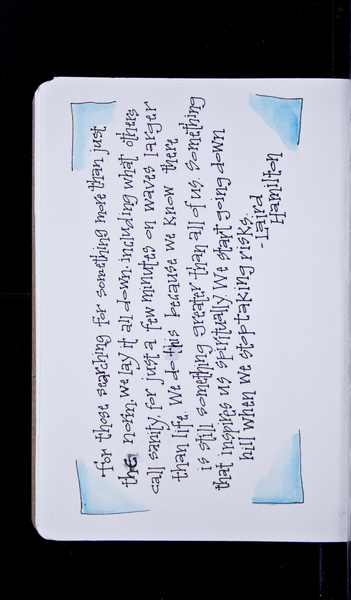 for those searching for something more than just
the norm. we lay it all down, including what others
call sanity, for just a few minutes on waves larger
than life. We do this because we know there
is still something greater than all of us. Something
that inspires us spiritually. We start going down
hill when we stop taking risks.
-Laird
Hamilton